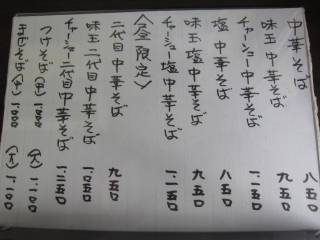 中華そば 八五〇
味玉中華そば 九五〇
チャーシュー中華そば 一一五〇
塩中華そば 八五〇
味玉塩中華そば 九五〇
チャーシュー塩中華そば 一一五〇
〈昼限定〉
二代目中華そば 九五〇
味玉二代目中華そば 一〇五〇
チャーシュー二代目中華そば 一二五〇
つけそば(中)1000 (大)1100
まぜそば(中)1000 (大)1100